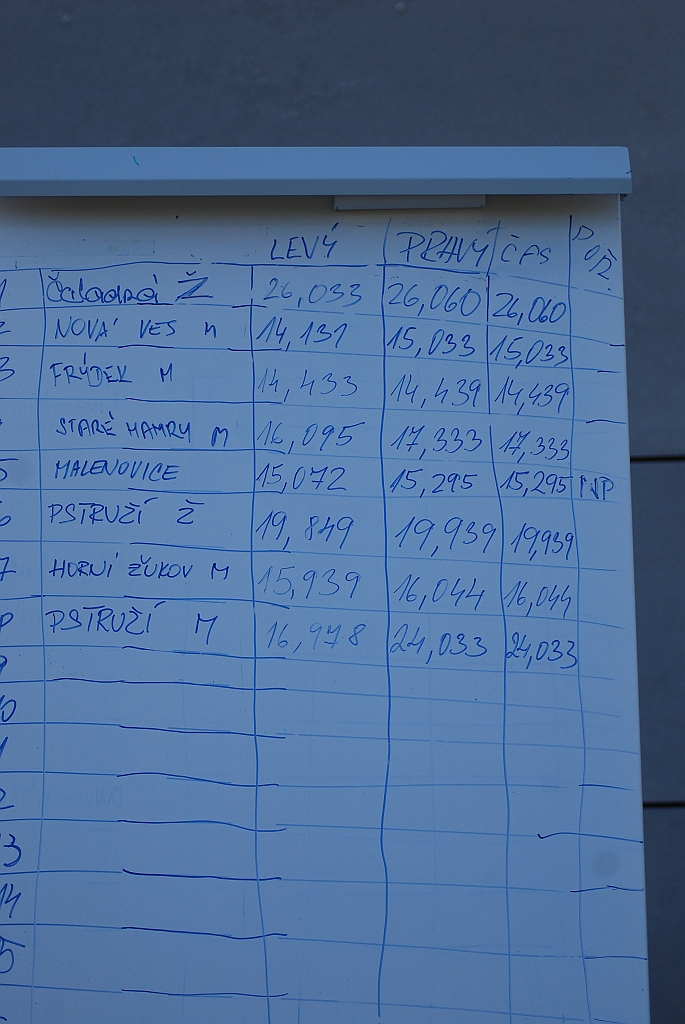 LEVÝ PRAVÝ ČAS POŘ.
1 Čeladná Ž 26,033 26,060 26,060
2 NOVÁ VES M 14,131 15,033 15,033
3 FRÝDEK M 14,433 14,439 14,439
STARÉ HAMRY M 16,095 17,333 17,333
5 MALENOVICE 15,072 15,295 15,295 NP
6 PSTRUŽÍ Ž 19,849 19,939 19,939
7 HORNÍ ŽUKOV M 15,939 16,044 16,044
8 PSTRUŽÍ M 16,978 24,033 24,033
9
10
1
2
13
14
5